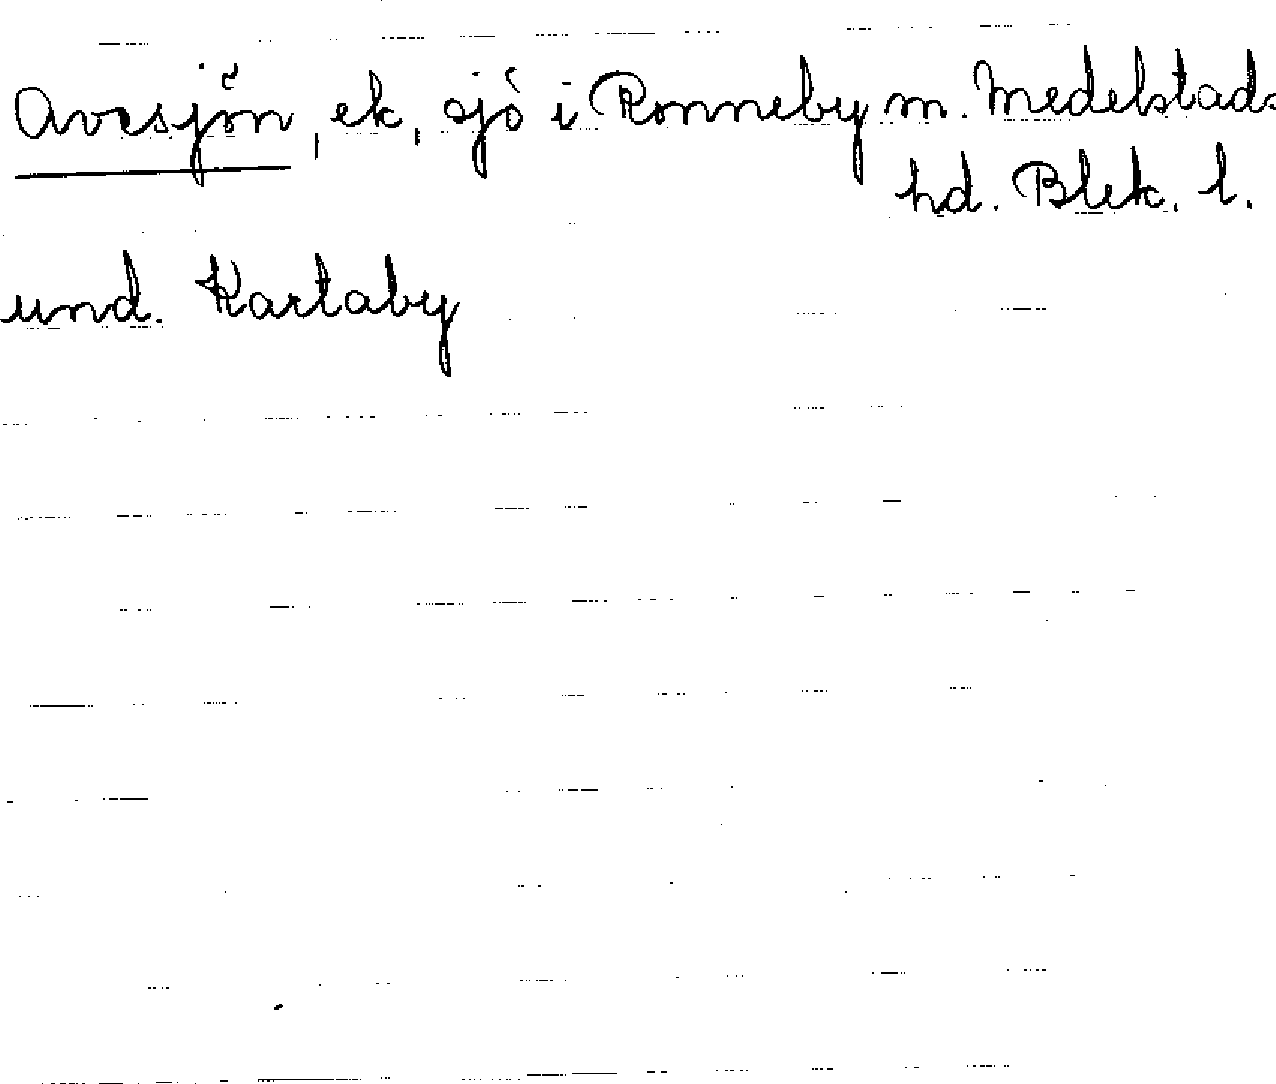 Avesjön, ek, sjö i Ronneby m. Medelstads
hd. Blek. l.
und. Kartaby